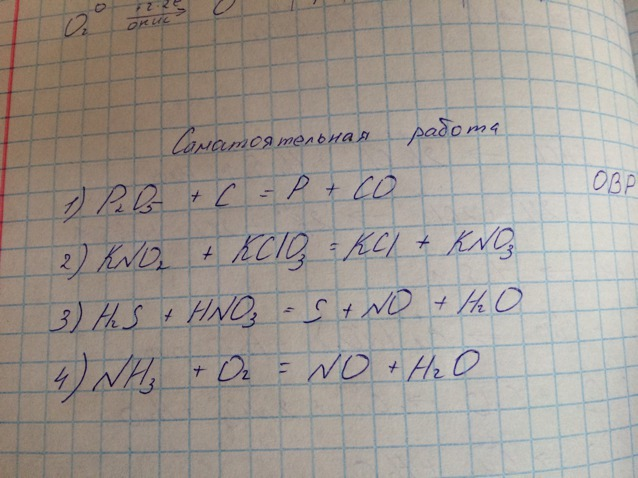 O₂⁰ O
Саматоятельная работа
ОВР
1) P₂O₅ + C = P + CO
2) KNO₂ + KClO₃ = KCl + KNO₃
3) H₂S + HNO₃ = S + NO + H₂O
4) NH₃ + O₂ = NO + H₂O